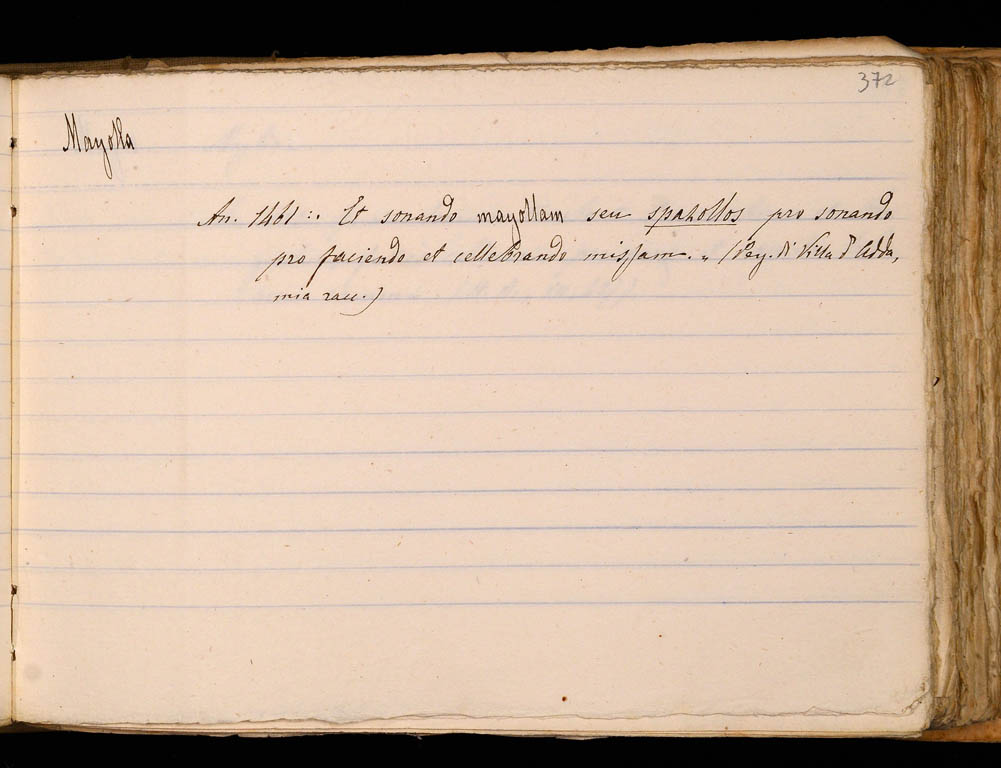 372
Mayolla
An. 1461 :. Et sonando mayollam seu spazollos pro sonando
pro faciendo et cellebrando missam. „ (Peg. di Villa d'Adda,
mia racc.)